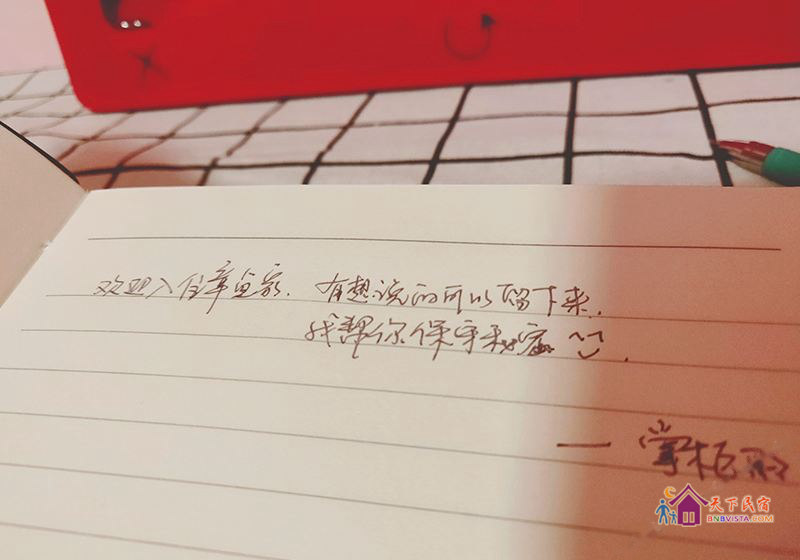 欢迎入住章鱼家. 有想说的可以留下来.
我帮你保守秘密.
— 掌柜的
天下民宿
BNBVISTA.COM